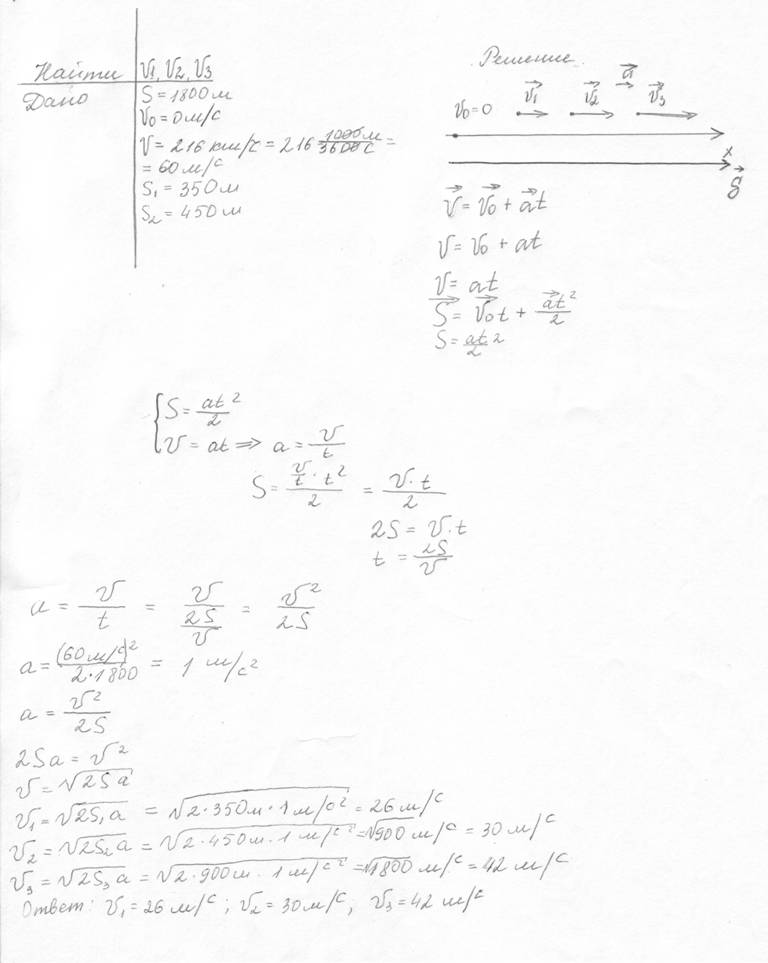 Найти v1, v2, v3
Дано
S = 1800 м
v0 = 0 м/с
v = 216 км/с = 216 1000 м/3600 с =
= 60 м/с
S1 = 350 м
S2 = 450 м
Решение.
v0 = 0 v⃗1 v⃗2 a⃗ v⃗3
x
S⃗
v⃗ = v⃗0 + a⃗t
v = v0 + at
v = at
S⃗ = v⃗0t + a⃗t²/2
S = at²/2
{ S = at²/2
v = at ⇒ a = v/t
S = (v/t · t²)/2 = (v · t)/2
2S = v · t
t = 2S/v
a = v/t = v/(2S/v) = v²/2S
a = (60 м/с)²/(2·1800) = 1 м/с²
a = v²/2S
2Sa = v²
v = √2Sa
v1 = √2S1a = √2·350м·1м/с² = 26 м/с
v2 = √2S2a = √2·450м·1м/с² = √900 м/с = 30 м/с
v3 = √2S3a = √2·900м·1м/с² = √1800 м/с = 42 м/с
Ответ: v1 = 26 м/с; v2 = 30 м/с, v3 = 42 м/с